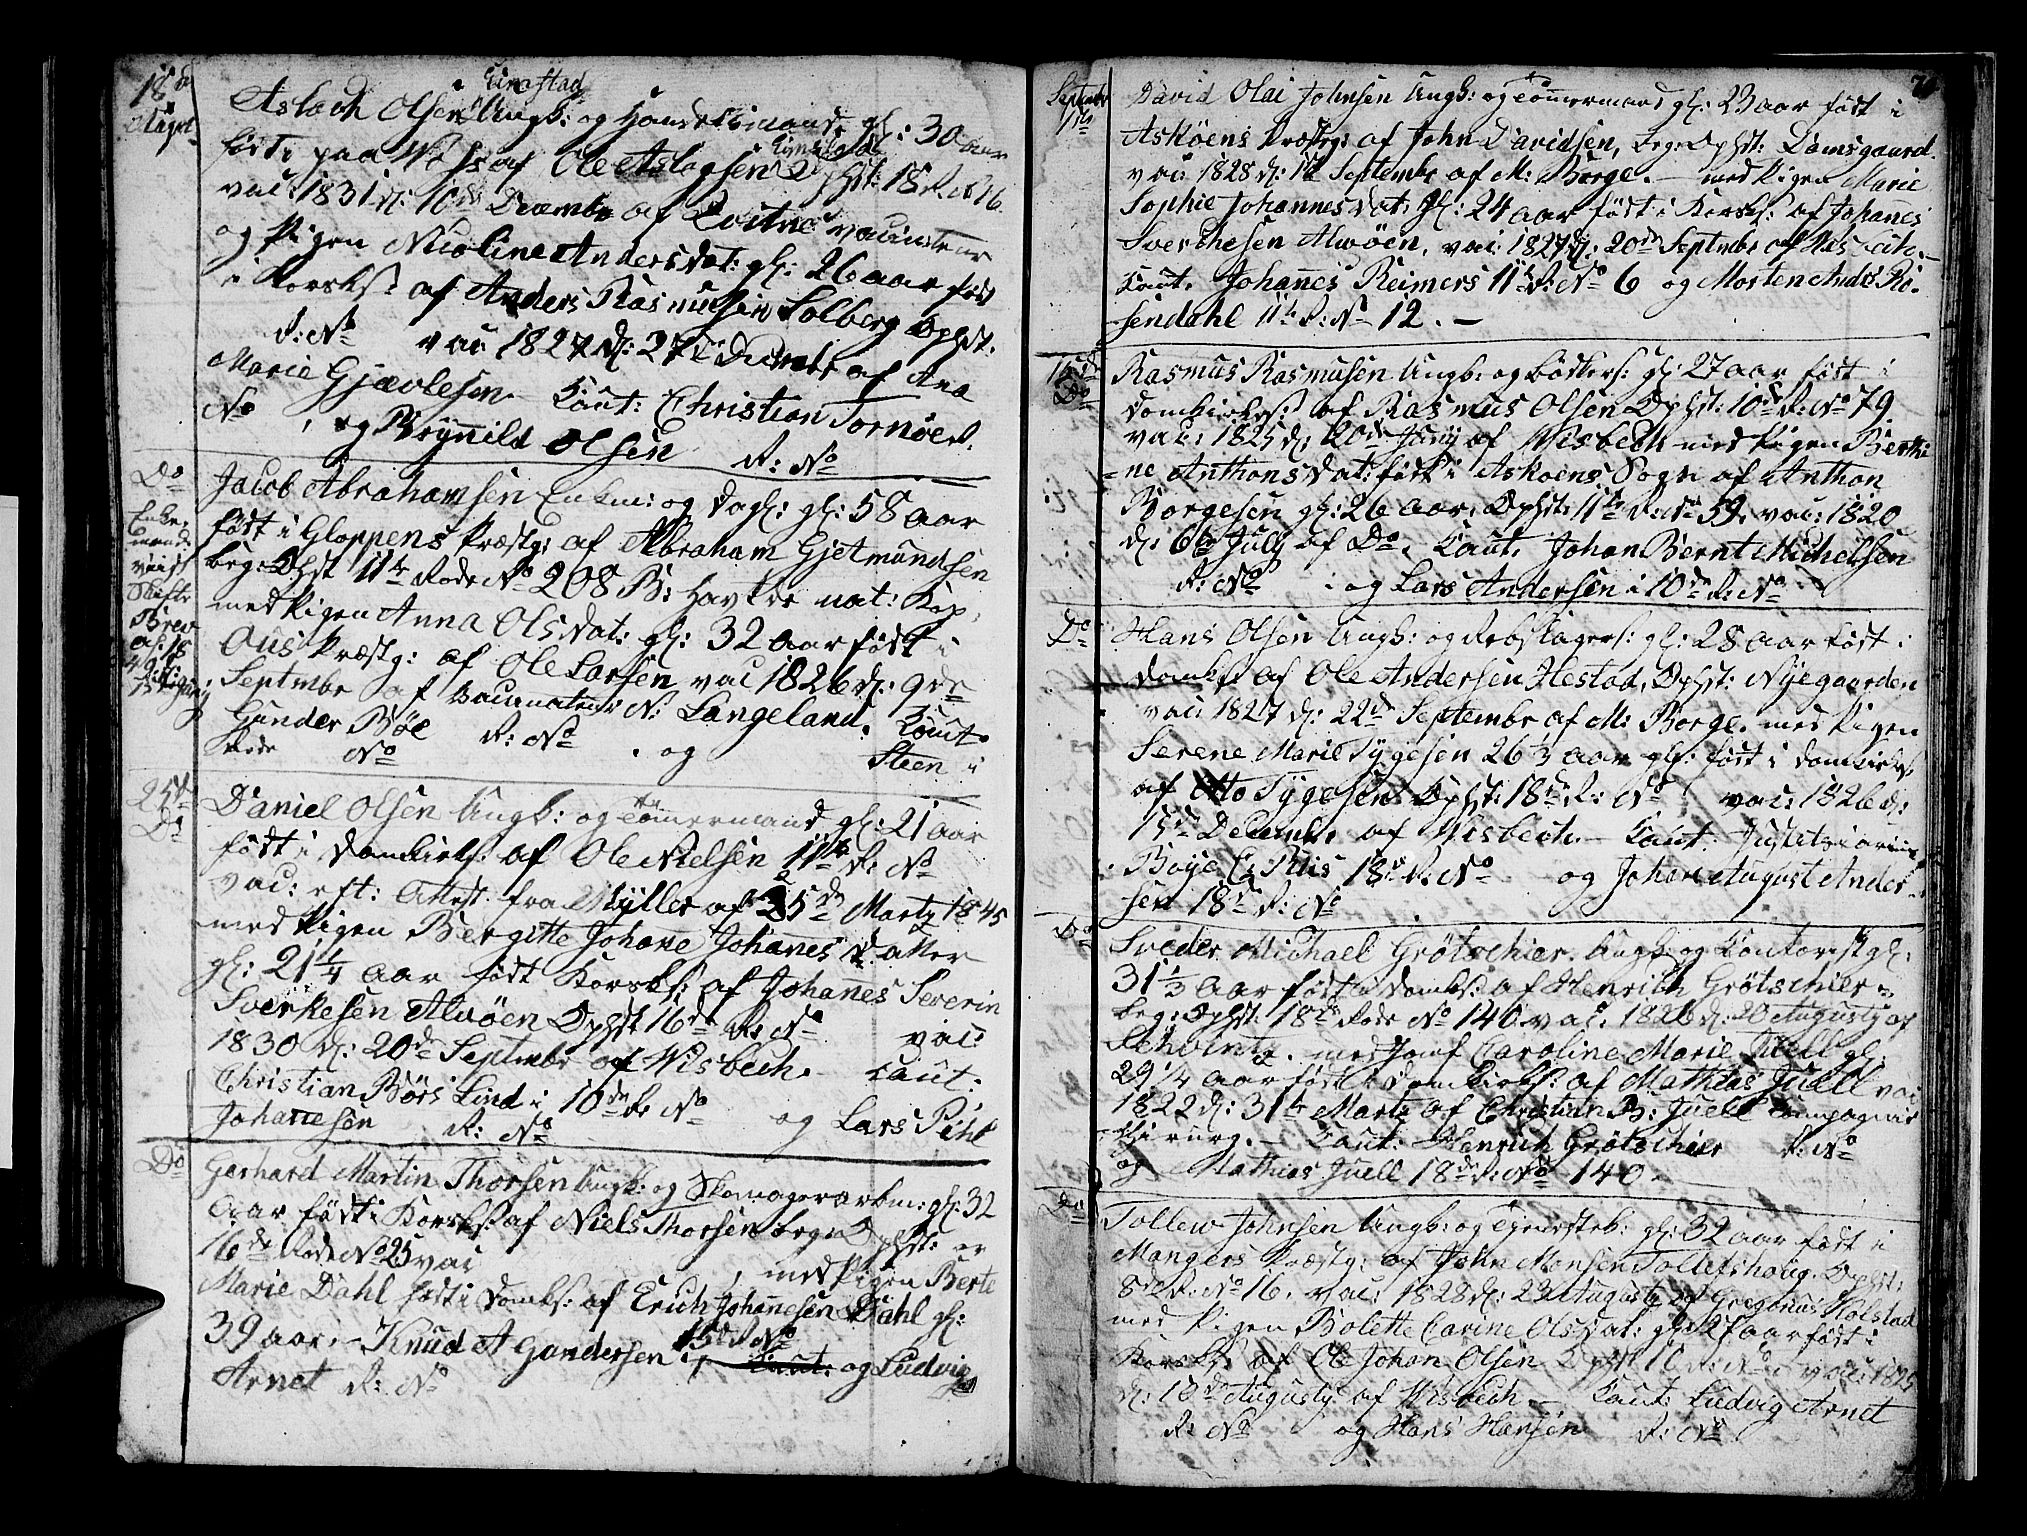 18de
August
i Kinestad
Aslach Olsen Ungk: og Handelsmand, gl: 30 aar
født paa Wos af Ole Aslagsen Kinestad Ophst: 18 R. No 16.
vac: 1831 d: 10de Decembr af Loitne vaccinateur
og Pigen Nicoline Andersdat: gl: 26 aar født
i Korsks: af Anders Rasmusen Solberg Ophst:
R: No vac 1827 d: 27de Decembr af Ana
Marie Gjævlesen. Caut: Christian Tornøe R.
No , og Brynnild Olsen R: No
Do
Enke-
mands
Skifte
Brev
af 18
Jacob Abrahamsen Enkm: og Dagl: gl: 58 aar
født i Gloppens Præstg: af Abraham Gjetmundsen
beg: Ophst 11te Rode No 208 B: Hav de nat: Kop,
med Pigen Anna Olsdat: gl: 32 aar født i
Ous Præstg: af Ole Larsen vac 1826 d: 9de
Septmbr af Vaccinateur N: Langeland. Caut:
Gunder Bøe R: No . og Steen i
Rode No
25de
Do
Daniel Olsen Ungk: og Tømmermand gl: 21 aar
født i Domkirks: af Ole Nielsen 11te R: No
vac: eft: Attest fra Myller af 25de Martz 1845
med Pigen Bergitte Johane Johanes Datter
gl: 21 1/4 aar født Korsks: af Johanes Severin
Sverkesen Alvøen Ophst 16de R: No vac:
1830 d: 20de Septmbr af Wisbech. Caut:
Christian Børs Lind i 10de R. No og Lars Pihl
Johannesen R: No
Do
Gerhard Martin Thorsen Ungk: og Skomagerarbm: gl: 32
Aar født i Korsks: af Niels Thorsen beg: Ophst: er
16de Rode No 25 vac , med Pigen Berte
Marie Dahl født i Domks: af Erich Johannesen Dahl gl:
39 aar. Knud A Gundersen 15de R No Caut: og Ludvig
Arnet R: No
Septembr
1ste
David Olai Johnsen Ungk: og Tømmermand gl: 23 aar født i
Askøens Præstg: af John Davidsen, beg: Ophst: Damsgaard.
vac: 1828 d: 12 Septembr af M: Borge. – med Pigen Marie
Sophie Johannesdat: gl: 24 aar født i Korsks: af Johanes
Sverchesen Alvøen, vac: 1827 d: 20de Septmbr af
Caut. Johanes Reimers 11te R: No 6 og Morten Andr: Ro-
sendahl 11te R: No 12. –
15de
Do
Rasmus Rasmusen Ungk: og Bødkers: gl: 27 aar født i
Domkirks: af Rasmus Olsen Ophst: 10de R: No 79.
vac: 1825 d: 20de Juny af Wisbech med Pigen Berthi-
ne Anthonsdat: født i Askøens Sogn af Anthon
Borgesen gl: 26 aar. Ophst: 11te R: No 59. vac: 1820
d: 6te July af Do. Caut. Johan Bernt Michelsen
R: No i og Lars Andersen i 10de R: No
Do
Hans Olsen Ungk: og Rebslagers: gl: 28 aar født i
Domks: af Ole Andersen Hestad, Ophst: Nyegaarden
vac: 1827 d: 22de Septembr af M: Borge. med Pigen
Serene Marie Tygesen 26 1/3 aar gl: født i Domkirks:
af Otto Tygesen Ophst: 18de R: No vac: 1826 d:
15de Decembr af Wisbech. – Caut: Justitziarius
Boye C: Riis 18de R: No og Johan August Ander-
sen 18de R: No
Do
Sveder Michael Grötschier. Ungk: og Contorist gl:
31 1/3 aar født i Domks: af Henrich Grötschier
beg: Ophst: 18de Rode No 140. vac: 1826 d: 20 Augusty af
med Jomf Caroline Marie Juell gl:
29 1/4 aar født i Domkirks: af Mathias Juell vac
1822 d: 31te Martz af Christian B: Juell Compagnie
Chirurg. – Caut: Henrich Grötschier R: No
og Mathias Juell 18de R: No 140.
Do
Tollew Johnsen Ungk: og gl: 32 aar født i
Mangers Præstg: af John Monsen Tollefshoug. Ophst:
8de R. No 16. vac: 1828 d: 23 Augusty af Gregorius Kolstad
med Pigen Bolette Carine Olsdat: gl: 27 aar født i
Korsks: af Ole Johan Olsen Ophst 16 R: No vac: 1825
d: 10de Augusty af Wisbech – Caut: Ludvig Arnet
R: No og Hans Hansen R: No